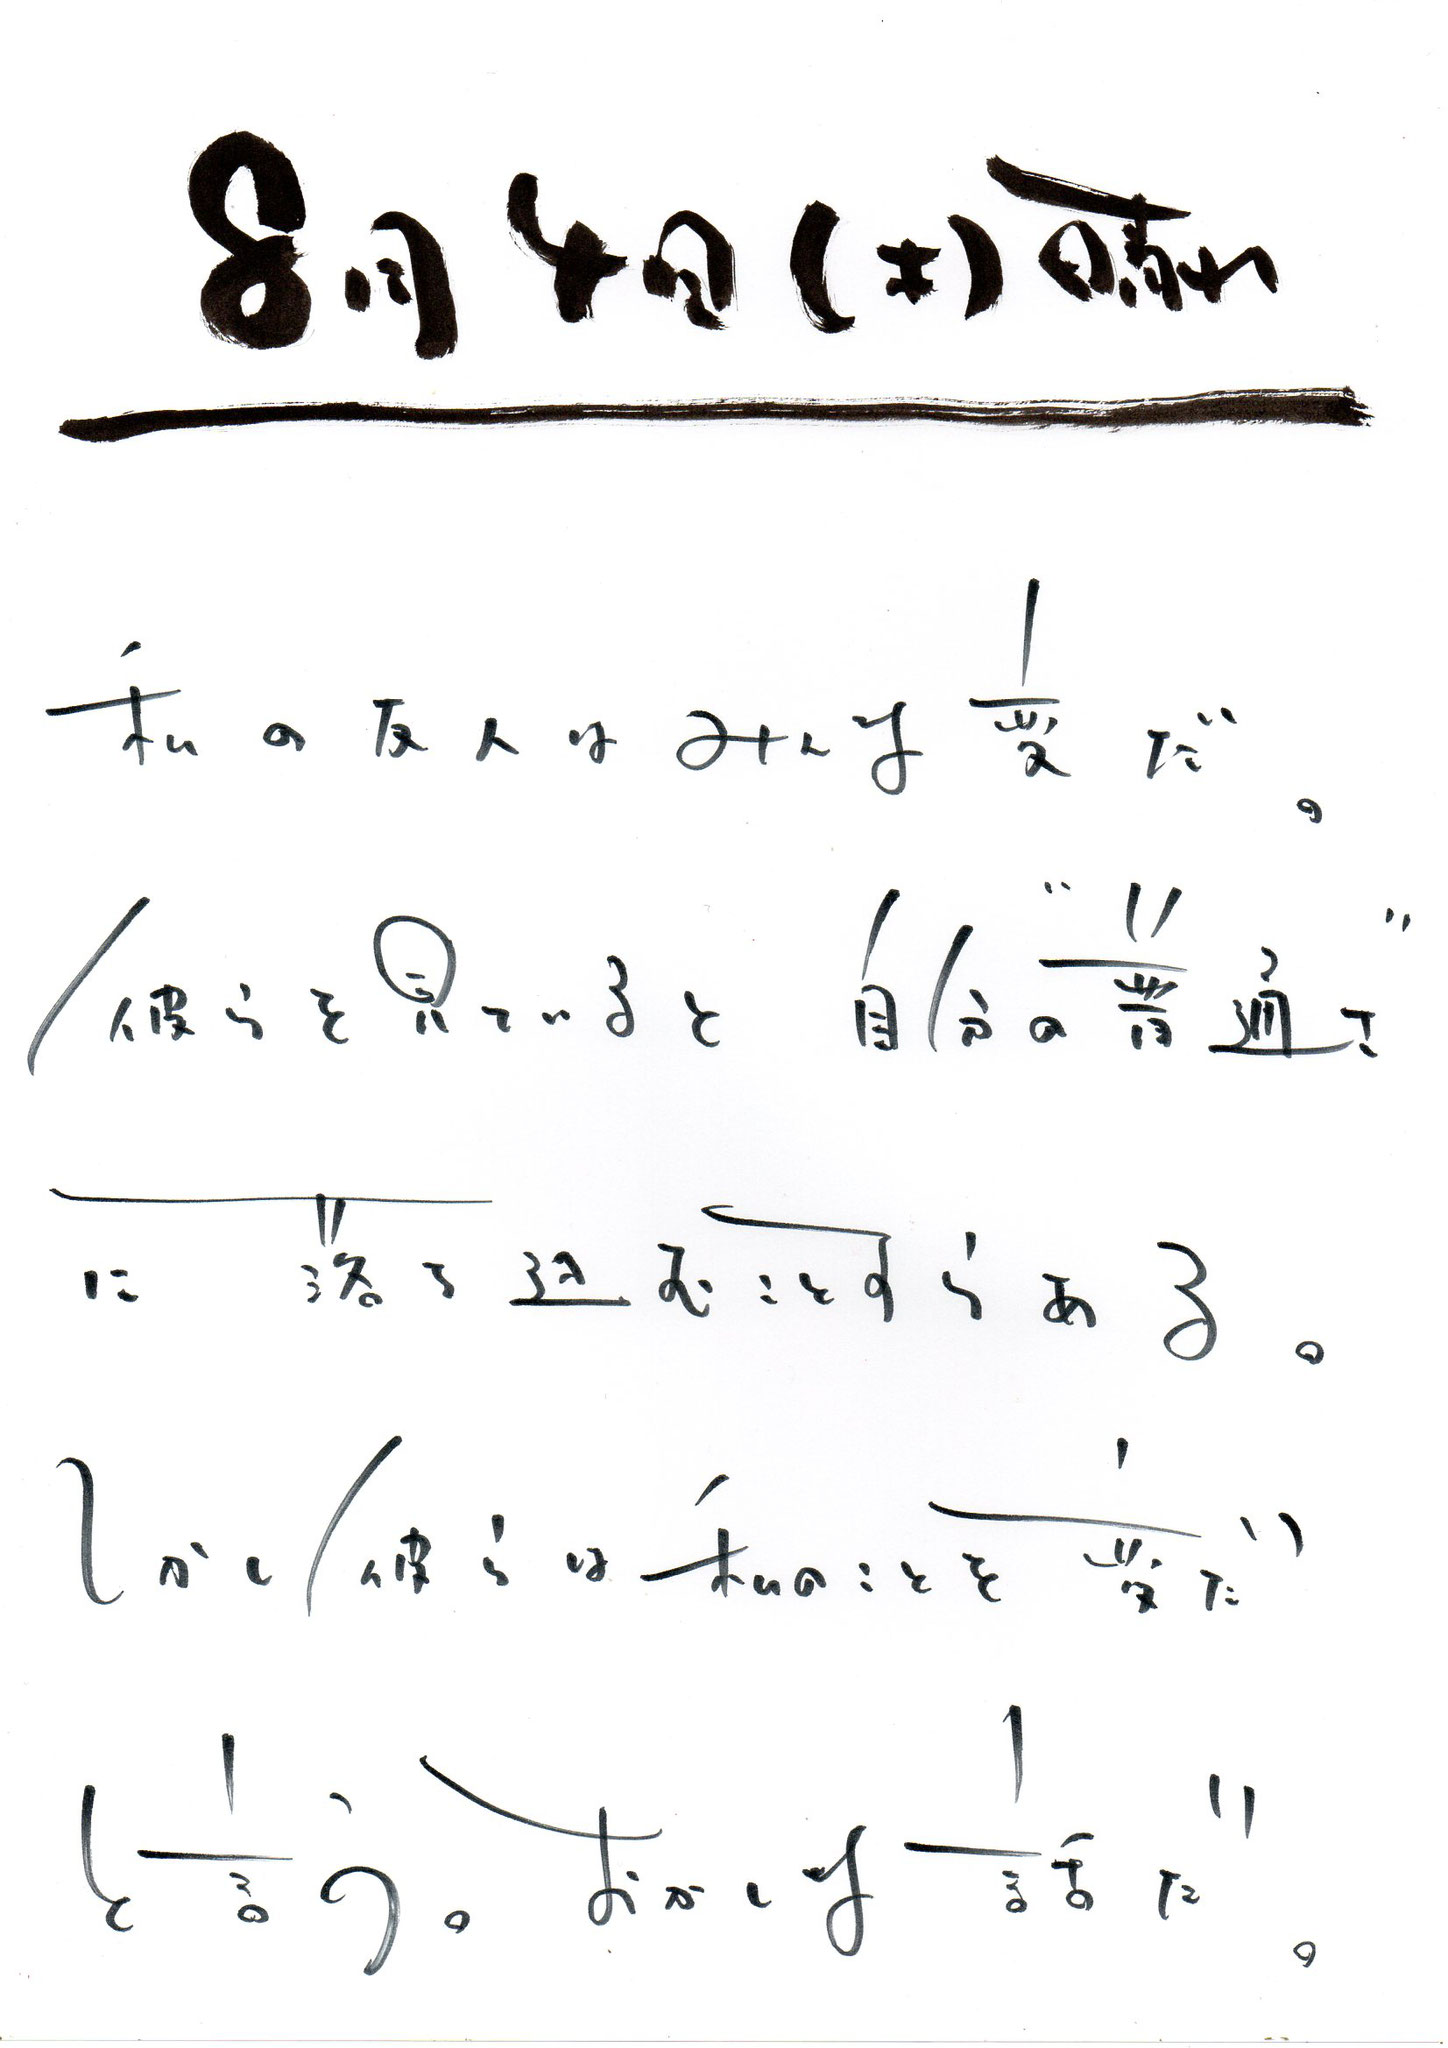 8月4日(土)晴れ
私の友人はみんな変だ。
彼らを見ていると 自分の“普通さ”
に 落ち込むことすらある。
しかし彼らは私のことを変だ
と言う。おかしな話だ。